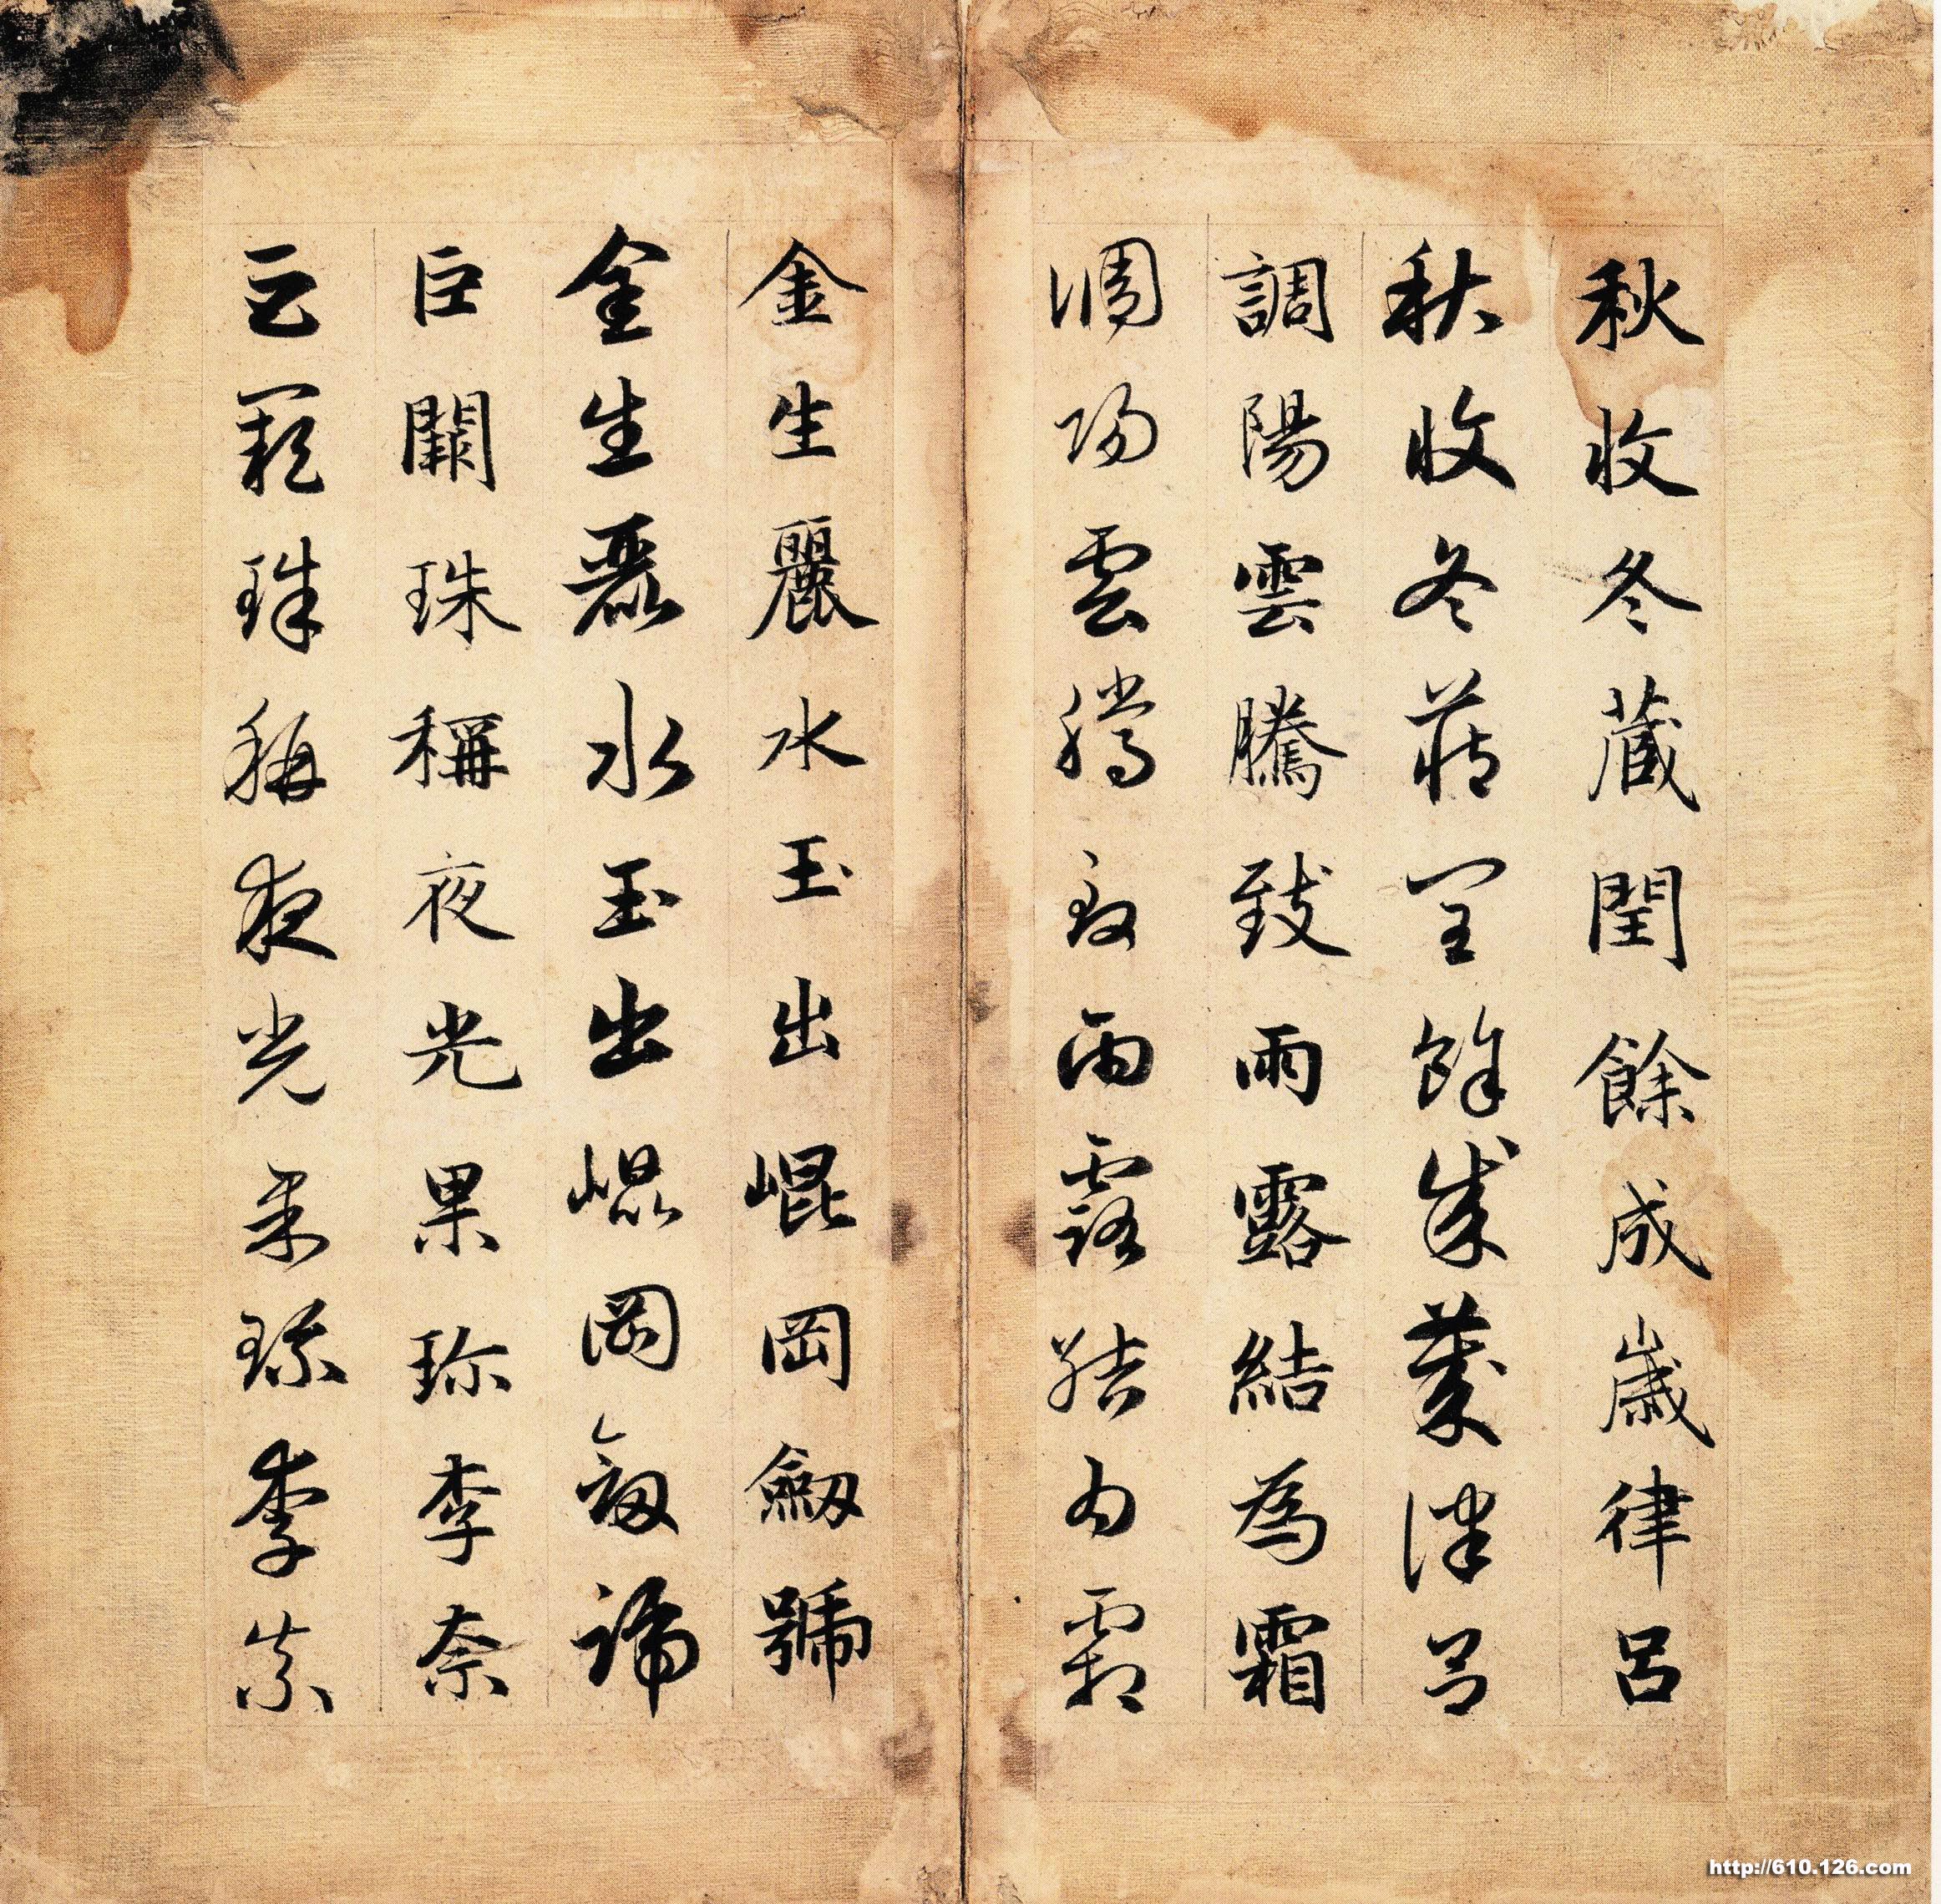 秋收冬藏閏餘成歲律呂
秋收冬藏閏餘成歲律呂
調陽雲騰致雨露結為霜
調陽雲騰致雨露結為霜
金生麗水玉出崐岡劒號
金生麗水玉出崐岡劒號
巨闕珠稱夜光果珎李奈
巨闕珠稱夜光果珎李奈
http://610.126.com